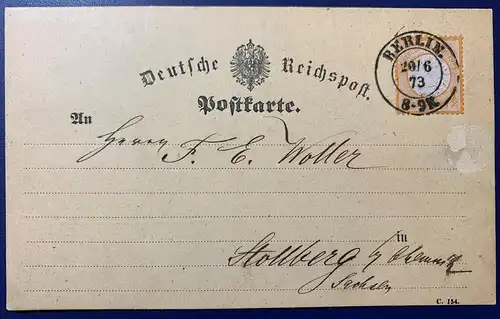 Deutsche Reichspost.
Postkarte.
BERLIN.
20/6
73
8-9N.
An
Herrn F. E. Wolter
in
Stollberg b/ Chemnitz
Sachsen
C. 154.